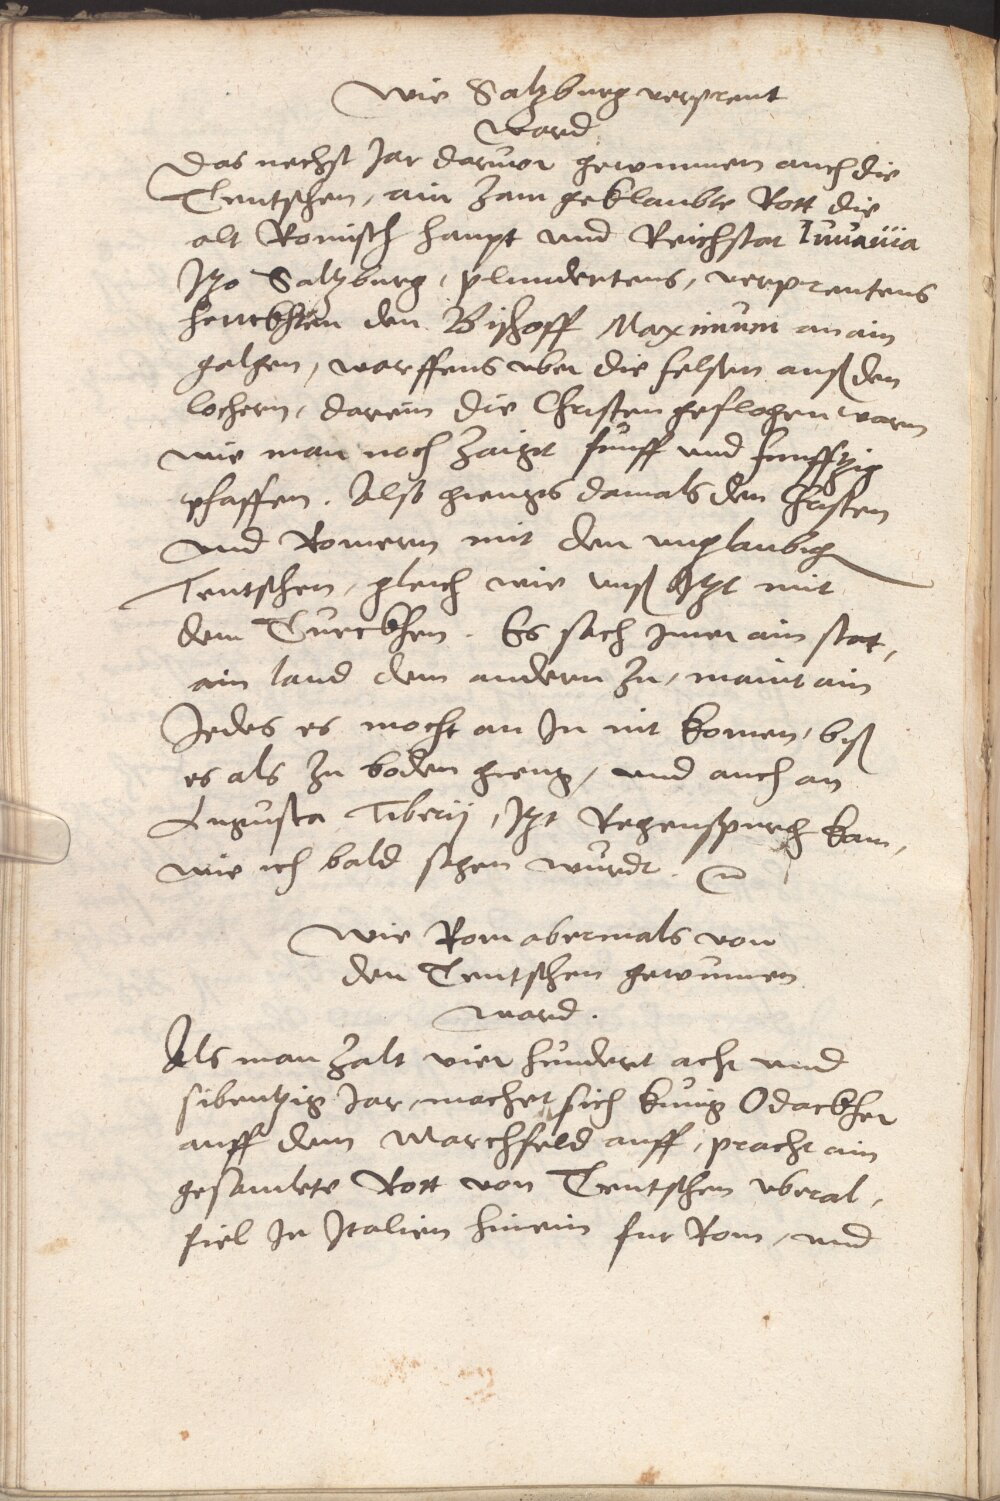 Wie Saltzburg verprent
ward
Das nechst Jar daruor gewunnen auch die
Teutschen, ain zam geklaubte Rott die
alt Romisch haupt und Reichstat Iuuauia
Jtzo Saltzburg, plundertens, verprentens
henckhten den Bischoff Maximum an ain
galgen, warffens uber die felsen auß den
lochern, darein die Christen geflohen warn
wie man noch zaigt funff und funfftzig
pfaffen. Also giengs damals den Christen
und Romern mit den unglaubigen
Teutschen, gleich wie unß Jtzt mit
dem Turckhen. Es sach Jmer ain stat,
ain land dem andern zu, maint ain
Jedes es mocht an Jn nit komen, biß
es als zu boden gieng, und auch an
Augusta Tiberij, Jtzt Regenspurg kam,
wie ich bald sagen wurdt.
Wie Rom abermals von
den Teutschen gewunnen
ward.
Als man zalt vier hundert acht und
sibentzig Jar, machet sich kunig Odackher
auff dem Marchfeld auff, pracht ain
gesamlete Rott von Teutschen uberal,
fiel Jn Jtalien hinein fur Rom, und